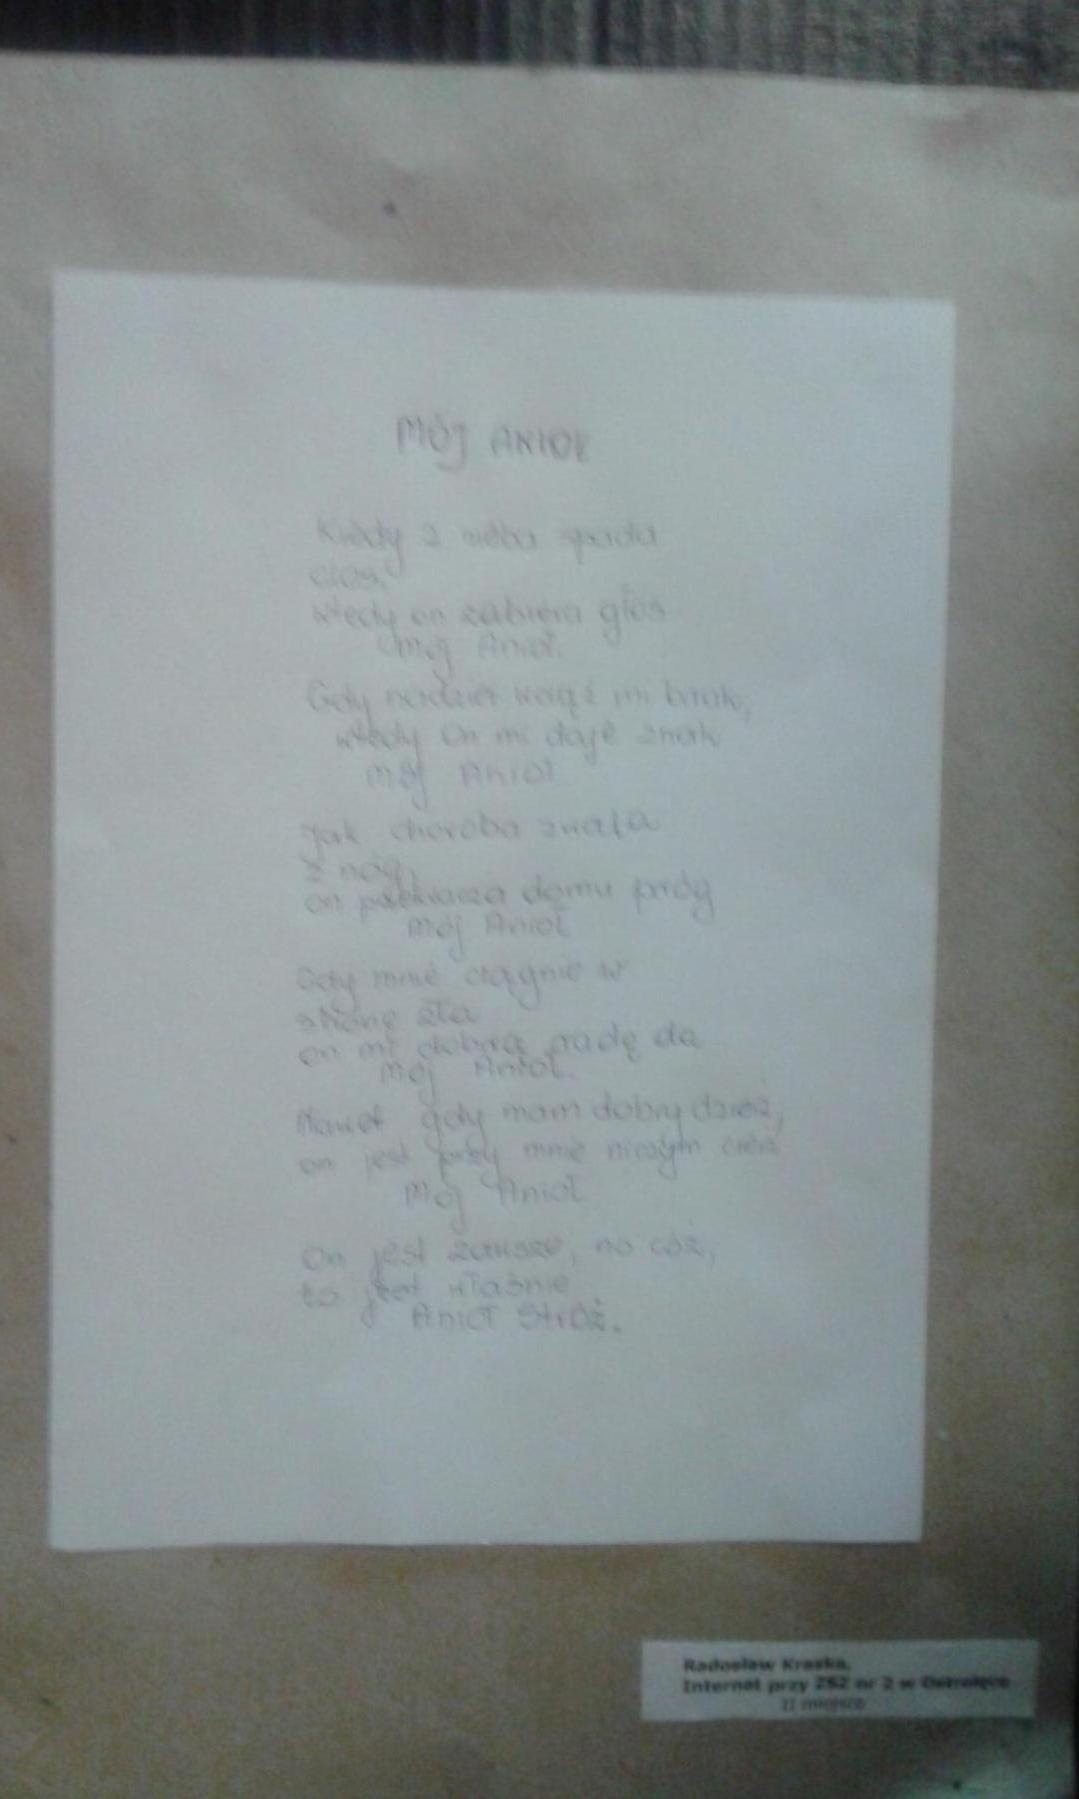 MÓJ ANIOŁ
Kiedy z nieba spada
cios,
wtedy on zabiera głos
mój Anioł.
Gdy nadziei wciąż mi brak,
wtedy On mi daje znak
mój Anioł
Jak choroba zwala
z nóg,
on domu próg
mój Anioł
Gdy mnie ciągnie w
stronę zła
on mi dobrą radę da
mój Anioł.
Nawet gdy mam dobry dzień,
on jest przy mnie niczym cień
Mój Anioł
On jest zawsze, no cóż,
to jest właśnie
Anioł Stróż.
Radosław Kraska,
Internat przy ZSZ nr 2 w Ostrołęce
II miejsce